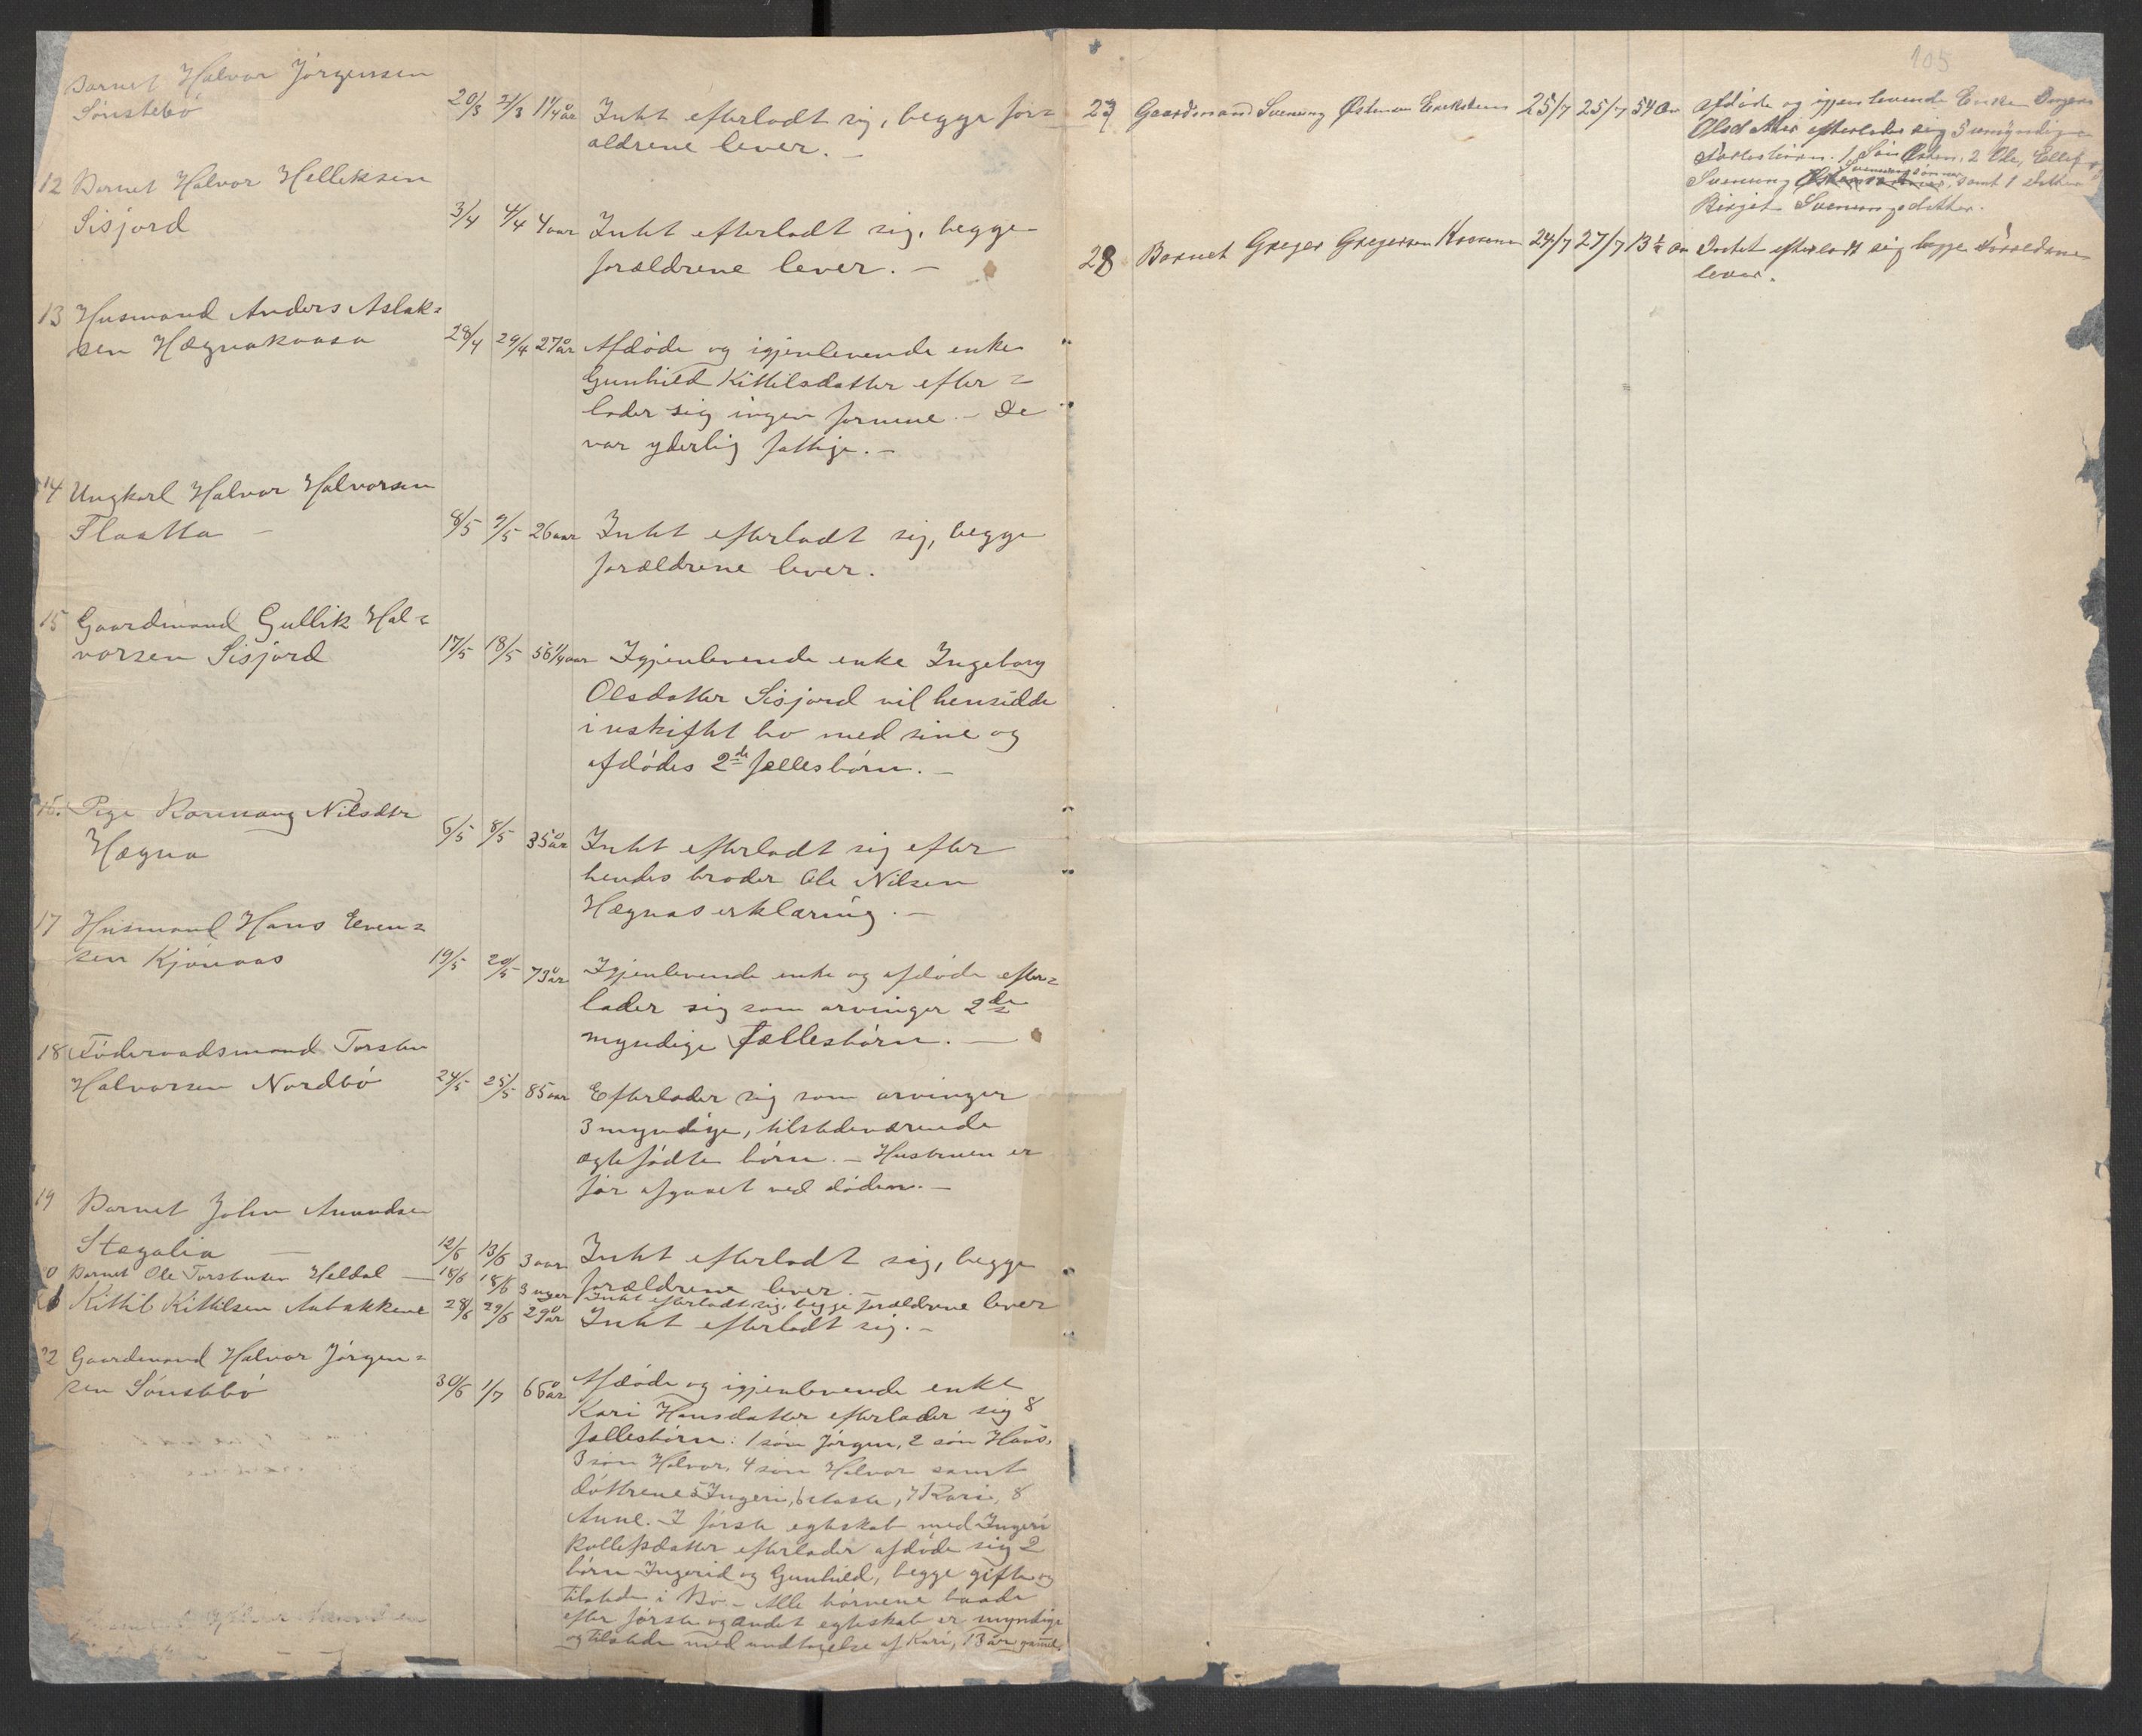 Barnet Halvor Jørgensen
Sønstebø 20/3 21/3 1 1/4 år Intet efterladt sig, begge for=
ældrene lever. –
12 Barnet Halvor Helleksen
Sisjord 3/4 4/4 4 aar Intet efterladt sig, begge
forældrene lever. –
13 Husmand Anders Aslak=
sen Hægnakaasa 28/4 29/4 27 år Afdøde og igjenlevende enke
Gunhild Kittilsdatter efter=
lader sig ingen formue. – De
var yderlig fattige. –
14 Ungkarl Halvor Halvorsen
Flaatta – 8/5 9/5 26 aar Intet efterladt sig, begge
forældrene lever.
15 Gaardmand Gullik Hal=
vorsen Sisjord 17/5 18/5 56 1/4 aar Igjenlevende enke Ingeborg
Olsdatter Sisjord vil hensidde
i uskiftet bo med sine og
afdødes 2de fællesbørn. –
16. Pige Nilsdtr
Hægna 6/5 8/5 35 år Intet efterladt sig efter
hendes broder Ole Nilsen
Hægnas erklæring. –
17 Husmand Hans Even=
sen Kjønaas 19/5 20/5 73 år Igjenlevende enke og afdøde efter=
lader sig som arvinger 2de
myndige fællesbørn. –
18 Føderaadsmand Torsten
Halvorsen Nordbø 24/5 25/5 85 aar Efterlader sig som arvinger
3 myndige, tilstedeværende
ægtefødte børn. – Hustruen er
før afgaaet ved døden. –
19 Barnet John Amundsen
Stegalia – 12/6 13/6 3 aar Intet efterladt sig, begge
forældrene lever. –
0 Barnet Ole Torstensen Heldal – 18/6 18/6 3 uger Intet efterladt sig, begge forældrene lever
21 Kittil Kittilsen Aubakkene 28/6 29/6 29 år Intet efterladt sig. –
22 Gaardmand Halvor Jørgen=
sen Sønstebø 30/6 1/7 66 år Afdøde og igjenlevende enke
Kari Hansdatter efterlader sig 8
fællesbørn: 1 søn Jørgen, 2 søn Hans,
3 søn Halvor, 4 søn Halvor samt
døttrene 5 Ingeri, 6 Aaste, 7 Kari, 8
Anne. – I første egteskab med Ingeri
Rollefsdatter efterlader afdøde sig 2
børn Ingerid og Gunhild, begge gifte og
tilstede i Bø. – Alle børnene baade
efter første og andet egteskab er myndige
og tilstede med undtagelse af Kari, 13 år gammel
105
27 Gaardmand Svenung Østensen 25/7 25/7 54 Aar Afdøde og igjenlevende Enke
Olsdatter efterlader sig 5 umyndige
Fællesbørn. 1 Søn Østen, 2 Ole, Ellef og
Svenungsønner
Svenung Østensønner, samt 1 Datter
Birgit Svenungsdatter.
28 Barnet Greger Gregersen 24/7 27/7 13 1/2 Aar Intet efterladt sig begge Forældrene
lever.